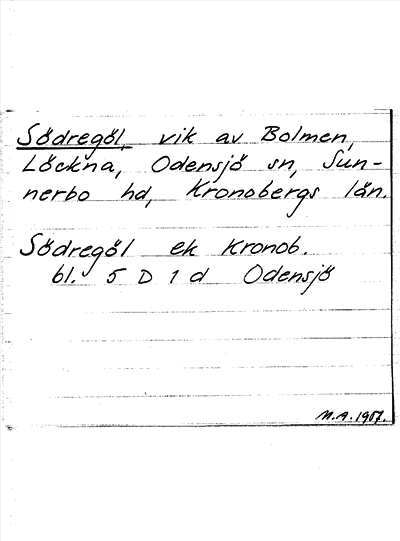 Södregöl, vik av Bolmen,
Löckna, Odensjö sn, Sun-
nerbo hd, Kronobergs län.
Södregöl ek Kronob.
bl. 5 D 1 d Odensjö
M.A.